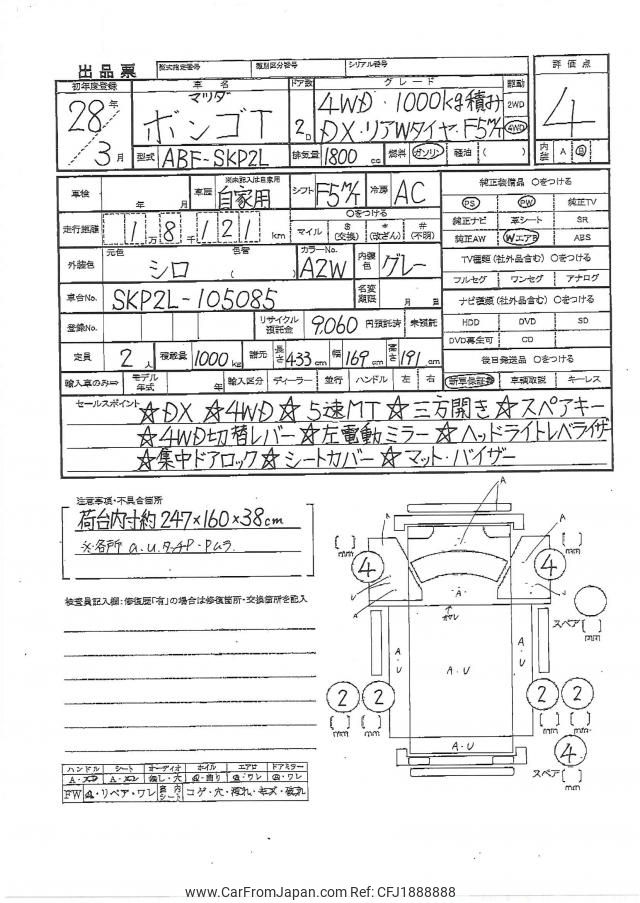 出品票 型式指定番号 類別区分番号 シリアル番号
初年度登録 車名 ドア数 グレード 駆動 評価点
28年 マツダ 4WD・1000kg積み 2WD 4
3月 ボンゴT 2D DX・リアWタイヤ・F5M/T 4WD
型式 ABF-SKP2L 排気量 1800 cc 燃料 ガソリン 軽油 ( ) 内装 A B
車検 年 月 車歴 ※未記入は自家用 自家用 シフト F5M/T 冷房 AC 純正装備品 ○をつける
PS PW 純正TV
走行距離 1万8千121km ○をつける マイル $(交換) *(改ざん) #(不明) 純正ナビ 革シート SR
純正AW WエアB ABS
外装色 元色 シロ 色替 ( ) カラーNo. A2W 内装色 グレー TV種類(社外品含む) ○をつける
フルセグ ワンセグ アナログ
車台No. SKP2L-105085 名変期限 月 日 ナビ種類(社外品含む) ○をつける
登録No. リサイクル預託金 9,060 円預託済 未預託 HDD DVD SD
DVD再生可 CD
定員 2人 積載量 1000kg 諸元 長さ 433cm 幅 169cm 高さ 191cm 後日発送品 ○をつける
輸入車のみ⇨ モデル年式 年 輸入区分 ディーラー 並行 ハンドル 左 右 新車保証書 車輌取説 キーレス
セールスポイント ☆DX ☆4WD☆ 5速MT ☆三方開き ☆スペアキー
☆4WD切替レバー ☆左電動ミラー ☆ヘッドライトレベライザー
☆集中ドアロック☆ シートカバー ☆マット・バイザー
注意事項・不具合箇所
荷台内寸約247×160×38cm
※各所
検査員記入欄:修復歴「有」の場合は修復箇所・交換箇所を記入
A A A
[ ] mm [ ] mm
4 4
U A U
A
スペア [ ] mm
A・U A・U A・U
2 2 2 2
[ ] mm [ ] mm [ ] mm [ ] mm
A・U
4
スペア [ ] mm
ハンドル シート オーディオ ホイル エアロ ドアミラー
A・スレ A・スレ 無し・大 A・曲り A・ワレ A・ワレ
FW A・リペア・ワレ 室内シート コゲ・穴・汚れ・キズ・破れ
www.CarFromJapan.com Ref: CFJ1888888